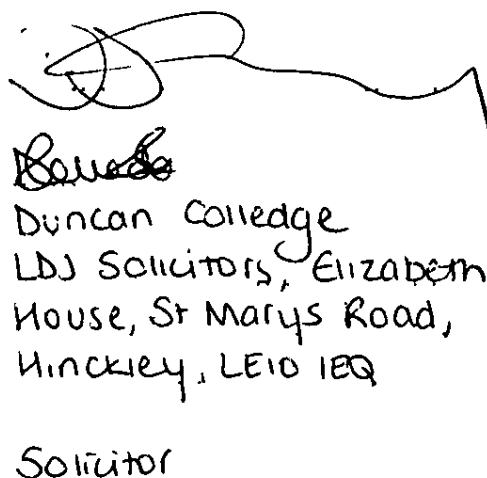 Duncan Colledge
LDJ Solicitors, Elizabeth
House, St Marys Road,
Hinckley, LE10 1EQ
Solicitor